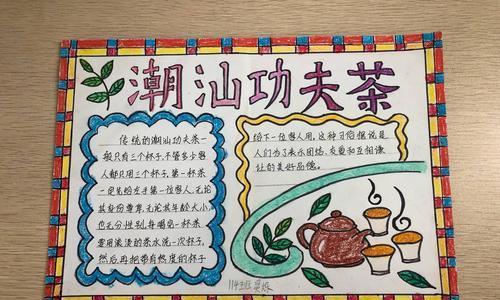 潮汕功夫茶
传统的潮汕功夫茶一
般只有三个杯子,不管多少客
人都只用三个杯子,第一杯茶
一定先给左手第一位客人,无论
其身份尊卑,无论其年龄大小,
也无分性别,每喝完一杯茶
要用滚烫的茶水洗一次杯子,
然后再把带有热度的杯子
给下一位客人用,这种习俗据说是
人们为了表示团结、友爱和互相谦
让的美好品德。
114班